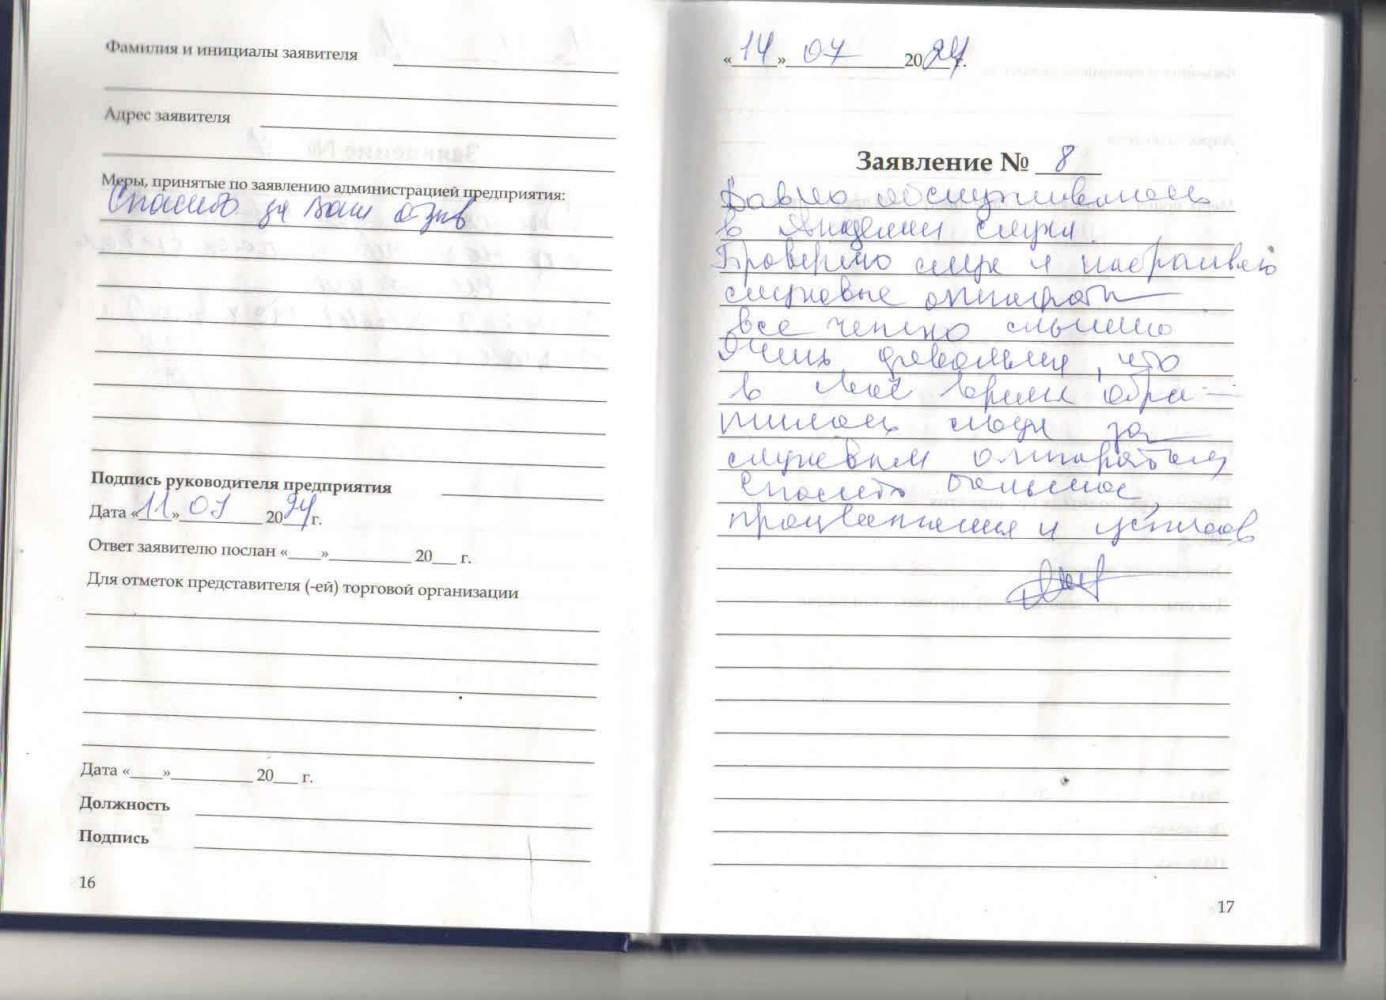 Фамилия и инициалы заявителя
Адрес заявителя
Меры, принятые по заявлению администрацией предприятия:
Спасибо за Ваш отзыв
Подпись руководителя предприятия
Дата «11» 07 2024 г.
Ответ заявителю послан «____»__________ 20___ г.
Для отметок представителя (-ей) торговой организации
Дата «____»__________ 20___ г.
Должность
Подпись
16
«14» 07 2024 г.
Заявление № 8
Давно обслуживаюсь
в Академии слуха.
Проверяю слух и настраиваю
слуховые аппараты
все четко слышно
Очень довольна, что
в своё время обра-
тилась сюда за
слуховым аппаратом
Спасибо большое,
процветания и успехов
17